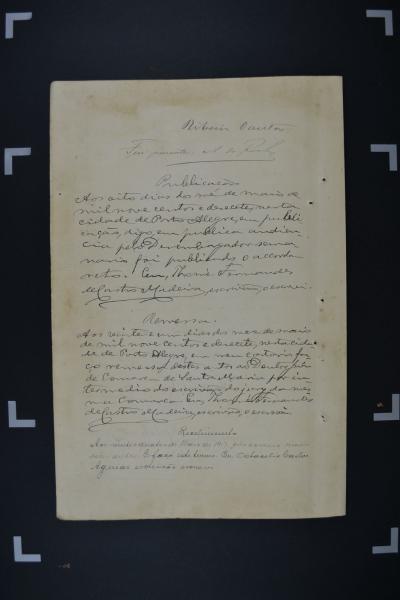 Ribeiro Dantas
Fui presente.
Publicação
Aos oito dias do mez de maio de
mil nove centos e desesete, nesta
cidade de Porto Alegre, em publi
cação, digo, em publica audien
cia pelo Desembargador sema
nario foi publicado o accordam
retro. Eu, Thomé Fernandes
de Castro Madeira, escrivão, o escrevi.
Remessa
Aos vinte e um dias do mez de maio
de mil nove centos e desesete, nesta cida
de de Porto Alegre, em meu cartorio fa
ço remessa destes autos ao
da Comarca de Santa Maria por in
termedio do escrivão do jury da mes
ma Comarca. Eu, Thomé Fernandes
de Castro Madeira, escrivão, o escrevi.
Recebimento
Aos vinte e quatro de Maio de 1917
E faço este termo. Eu
escrivão escrevi